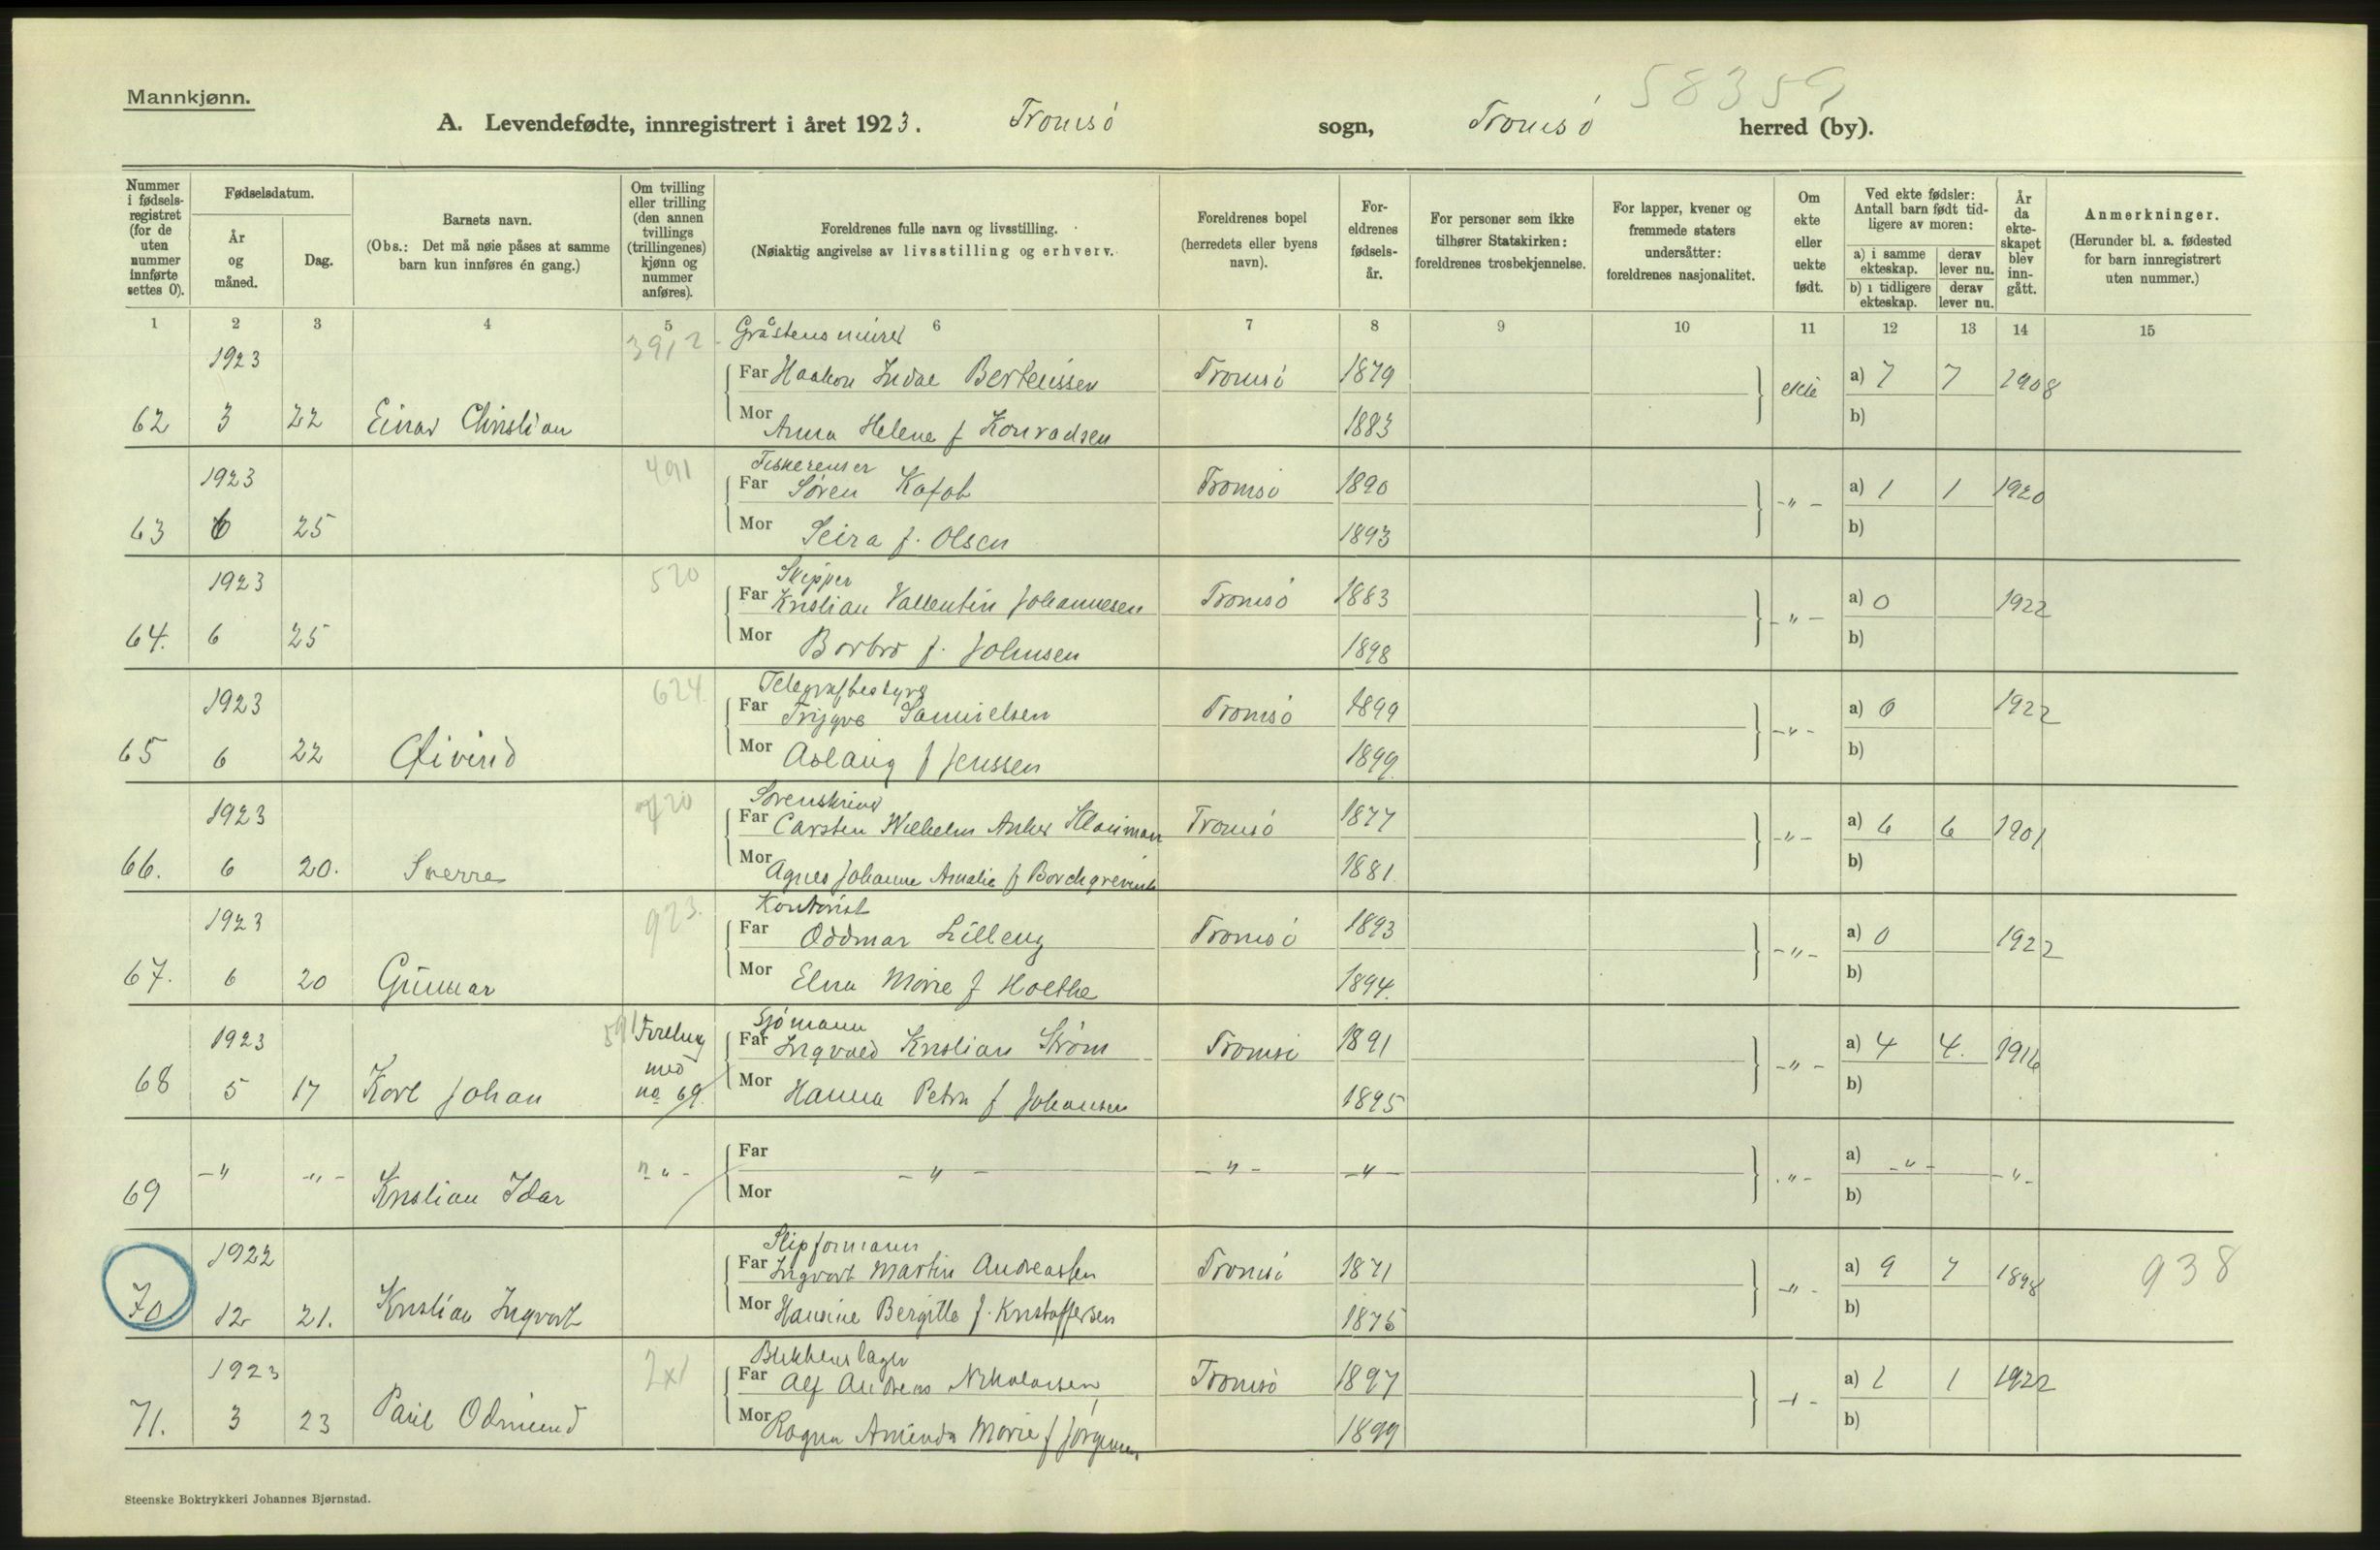 58359
Mannkjønn.
A. Levendefødte, innregistrert i året 1923. Tromsö sogn, Tromsö herred (by).
Nummer i fødsels-registret (for de uten nummer innførte settes 0).
Fødselsdatum.
År og måned.
Dag.
Barnets navn.
(Obs.: Det må nøie påses at samme barn kun innføres én gang.)
Om tvilling eller trilling (den annen tvillings (trillingenes) kjønn og nummer anføres).
Foreldrenes fulle navn og livsstilling.
(Nøiaktig angivelse av livsstilling og erhverv.
Foreldrenes bopel (herredets eller byens navn).
For-eldrenes fødsels-år.
For personer som ikke tilhører Statskirken: foreldrenes trosbekjennelse.
For lapper, kvener og fremmede staters undersåtter: foreldrenes nasjonalitet.
Om ekte eller uekte født.
Ved ekte fødsler: Antall barn født tid-ligere av moren:
a) i samme ekteskap. derav lever nu.
b) i tidligere ekteskap. derav lever nu.
År da ekte-skapet blev inn-gått.
Anmerkninger.
(Herunder bl. a. fødested for barn innregistrert uten nummer.)
1 2 3 4 5 6 7 8 9 10 11 12 13 14 15
3912 Gråstensmurer
1923 Far Haakon Indal Berteussen Tromsö 1879 ekte a) 7 7 1908
62 3 22 Einar Christian Mor Anna Helene f Konradsen 1883 b)
491 Fiskerenser
1923 Far Sören Kafob Tromsö 1890 -"- a) 1 1 1920
63 6 25 Mor Seira f. Olsen 1893 b)
520 Skipper
1923 Far Kristian Vallentin Johannesen Tromsö 1883 -"- a) 0 1922
64. 6 25 Mor Borbro f. Johnsen 1898 b)
624 Telegrafbestyrer
1923 Far Trygve Samuelsen Tromsö 1899 -"- a) 0 1922
65 6 22 Øivind Mor Aslaug f Jenssen 1899 b)
720 Sorenskriver
1923 Far Carsten Wilhelm Anker Tromsö 1877 -"- a) 6 6 1901
66. 6 20. Sverre Mor Agnes Johanne Amalie f Borchgrevink 1881 b)
923. Kontorist
1923 Far Oddmar Lilleng Tromsö 1893 -"- a) 0 1922
67. 6 20 Gunnar Mor Elna Marie f Holthe 1894. b)
591 Tvilling Sjömann
1923 med Far Ingvald Kristian Ström Tromsö 1891 -"- a) 4 4. 1916
68 5 17 Karl Johan no 69. Mor Hanna Petra f Johansen 1895 b)
Far
69 -"- -"- Kristian Idar -"- -"- -"- -"- -"- a) -"- -"-
Mor b)
Slipformann
1922 Far Ingvart Martin Andreassen Tromsö 1871 -"- a) 9 7 1898 938
70 12 21. Kristian Ingvart Mor Hansine Bergitte f. Kristoffersen 1876 b)
2x1 Blikkenslager
1923 Far Alf Andreas Nikolaisen Tromsö 1897 -"- a) 1 1 1922
71. 3 23 Paul Odmund Mor Ragna Aminda Marie f Jörgensen 1899 b)
Steenske Boktrykkeri Johannes Bjørnstad.